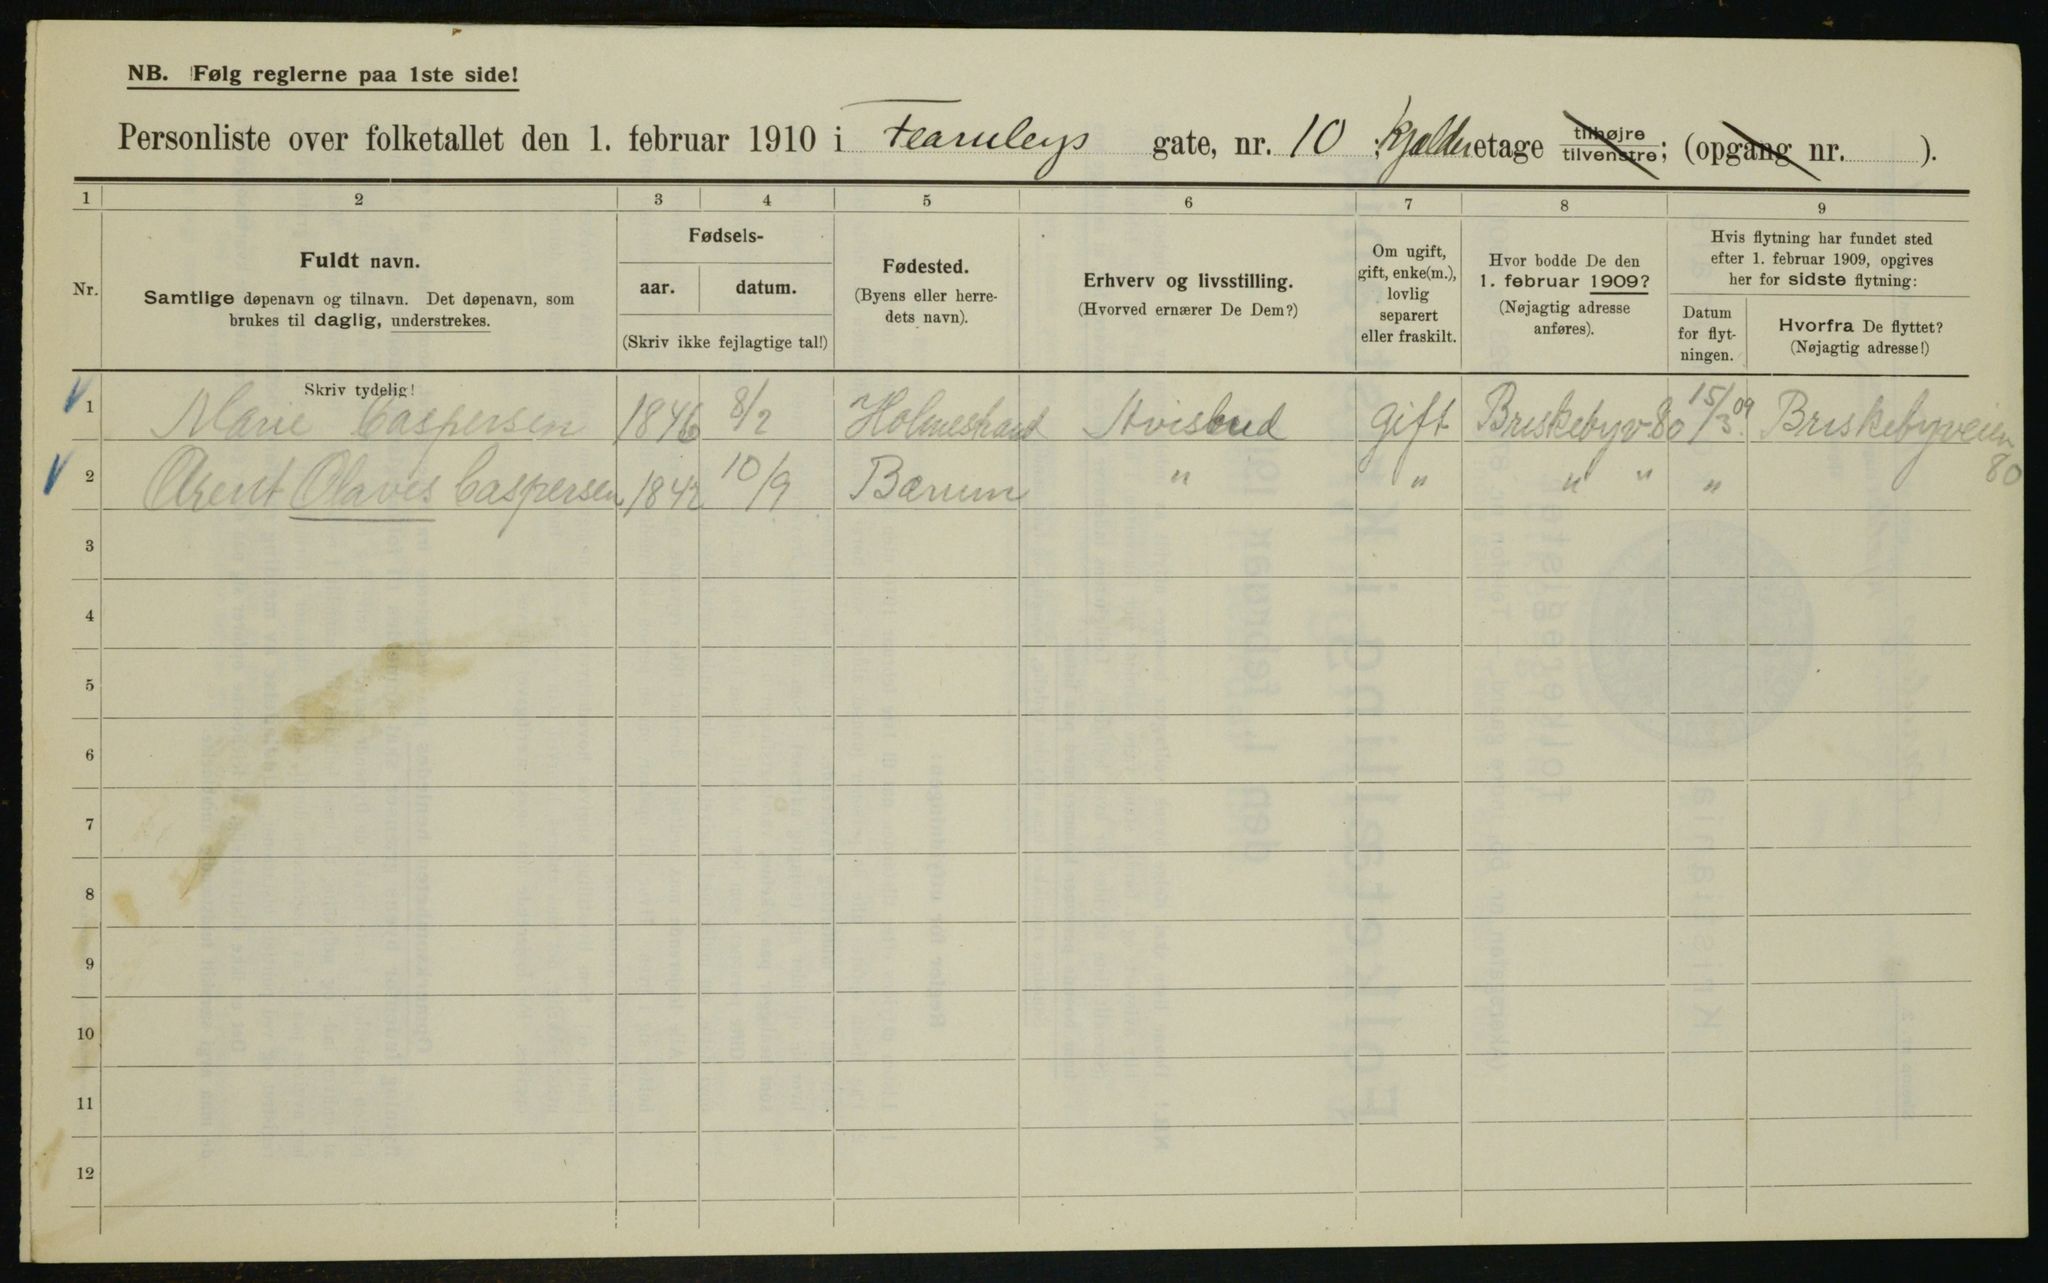 NB. Følg reglerne paa 1ste side!
Personliste over folketallet den 1. februar 1910 i Fearnleys gate, nr. 10 ; Kjælderetage tilhøjre tilvenstre; (opgang nr. ).
1 2 3 4 5 6 7 8 9
Nr.
Fuldt navn.
Samtlige døpenavn og tilnavn. Det døpenavn, som
brukes til daglig, understrekes.
Fødsels-
aar. datum.
(Skriv ikke fejlagtige tal!)
Fødested.
(Byens eller herre-
dets navn).
Erhverv og livsstilling.
(Hvorved ernærer De Dem?)
Om ugift,
gift, enke(m.),
lovlig
separert
eller fraskilt.
Hvor bodde De den
1. februar 1909?
(Nøjagtig adresse
anføres).
Hvis flytning har fundet sted
efter 1. februar 1909, opgives
her for sidste flytning:
Datum
for flyt-
ningen.
Hvorfra De flyttet?
(Nøjagtig adresse!)
Skriv tydelig!
1 Marie Caspersen 1846 8/2 Holmestrand Avisbud gift Briskebyv 80 15/3 09 Briskebyveien 80
2 Arent Olaves Caspersen 1842 10/9 Bærum " " " " "
3
4
5
6
7
8
9
10
11
12